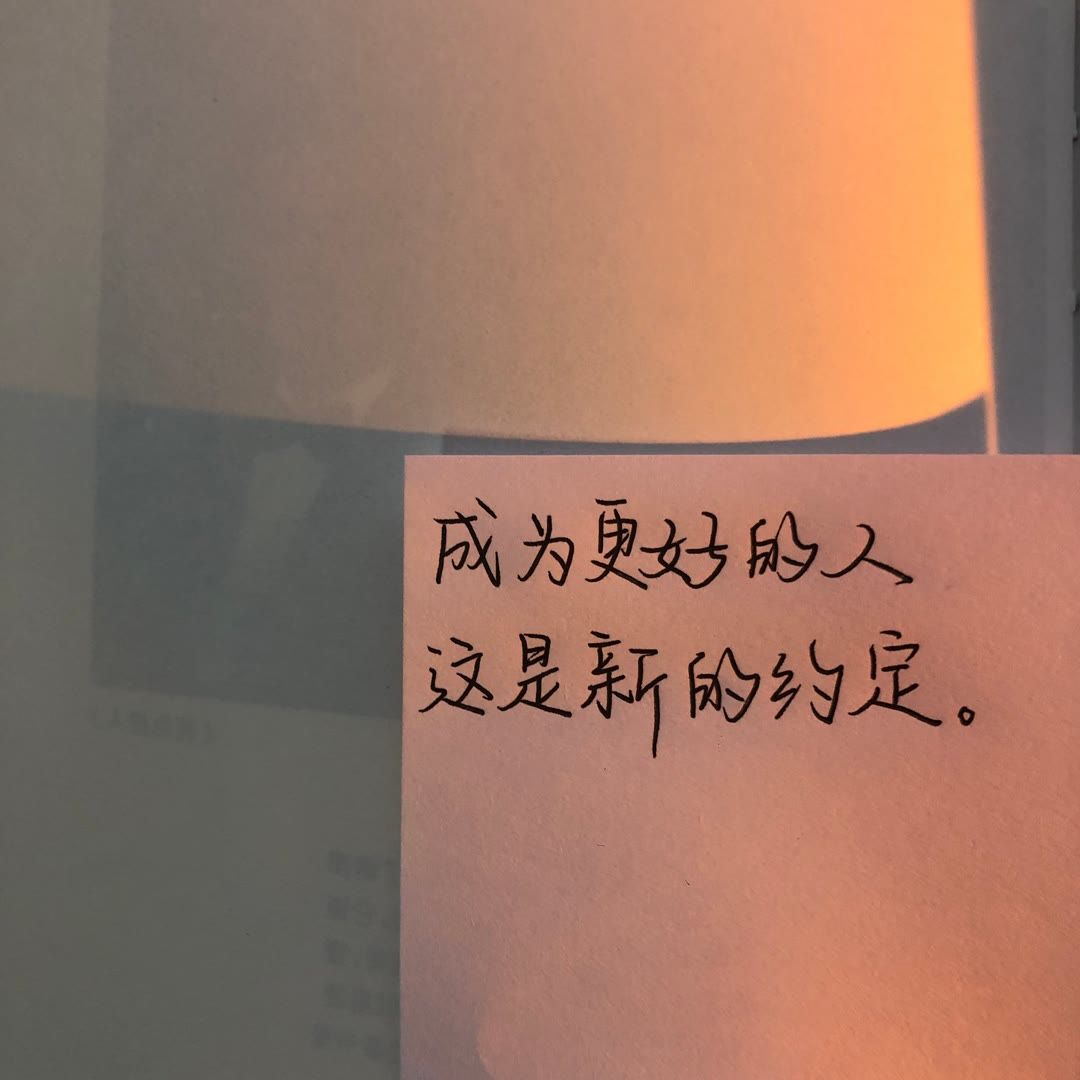 成为更好的人
这是新的约定。